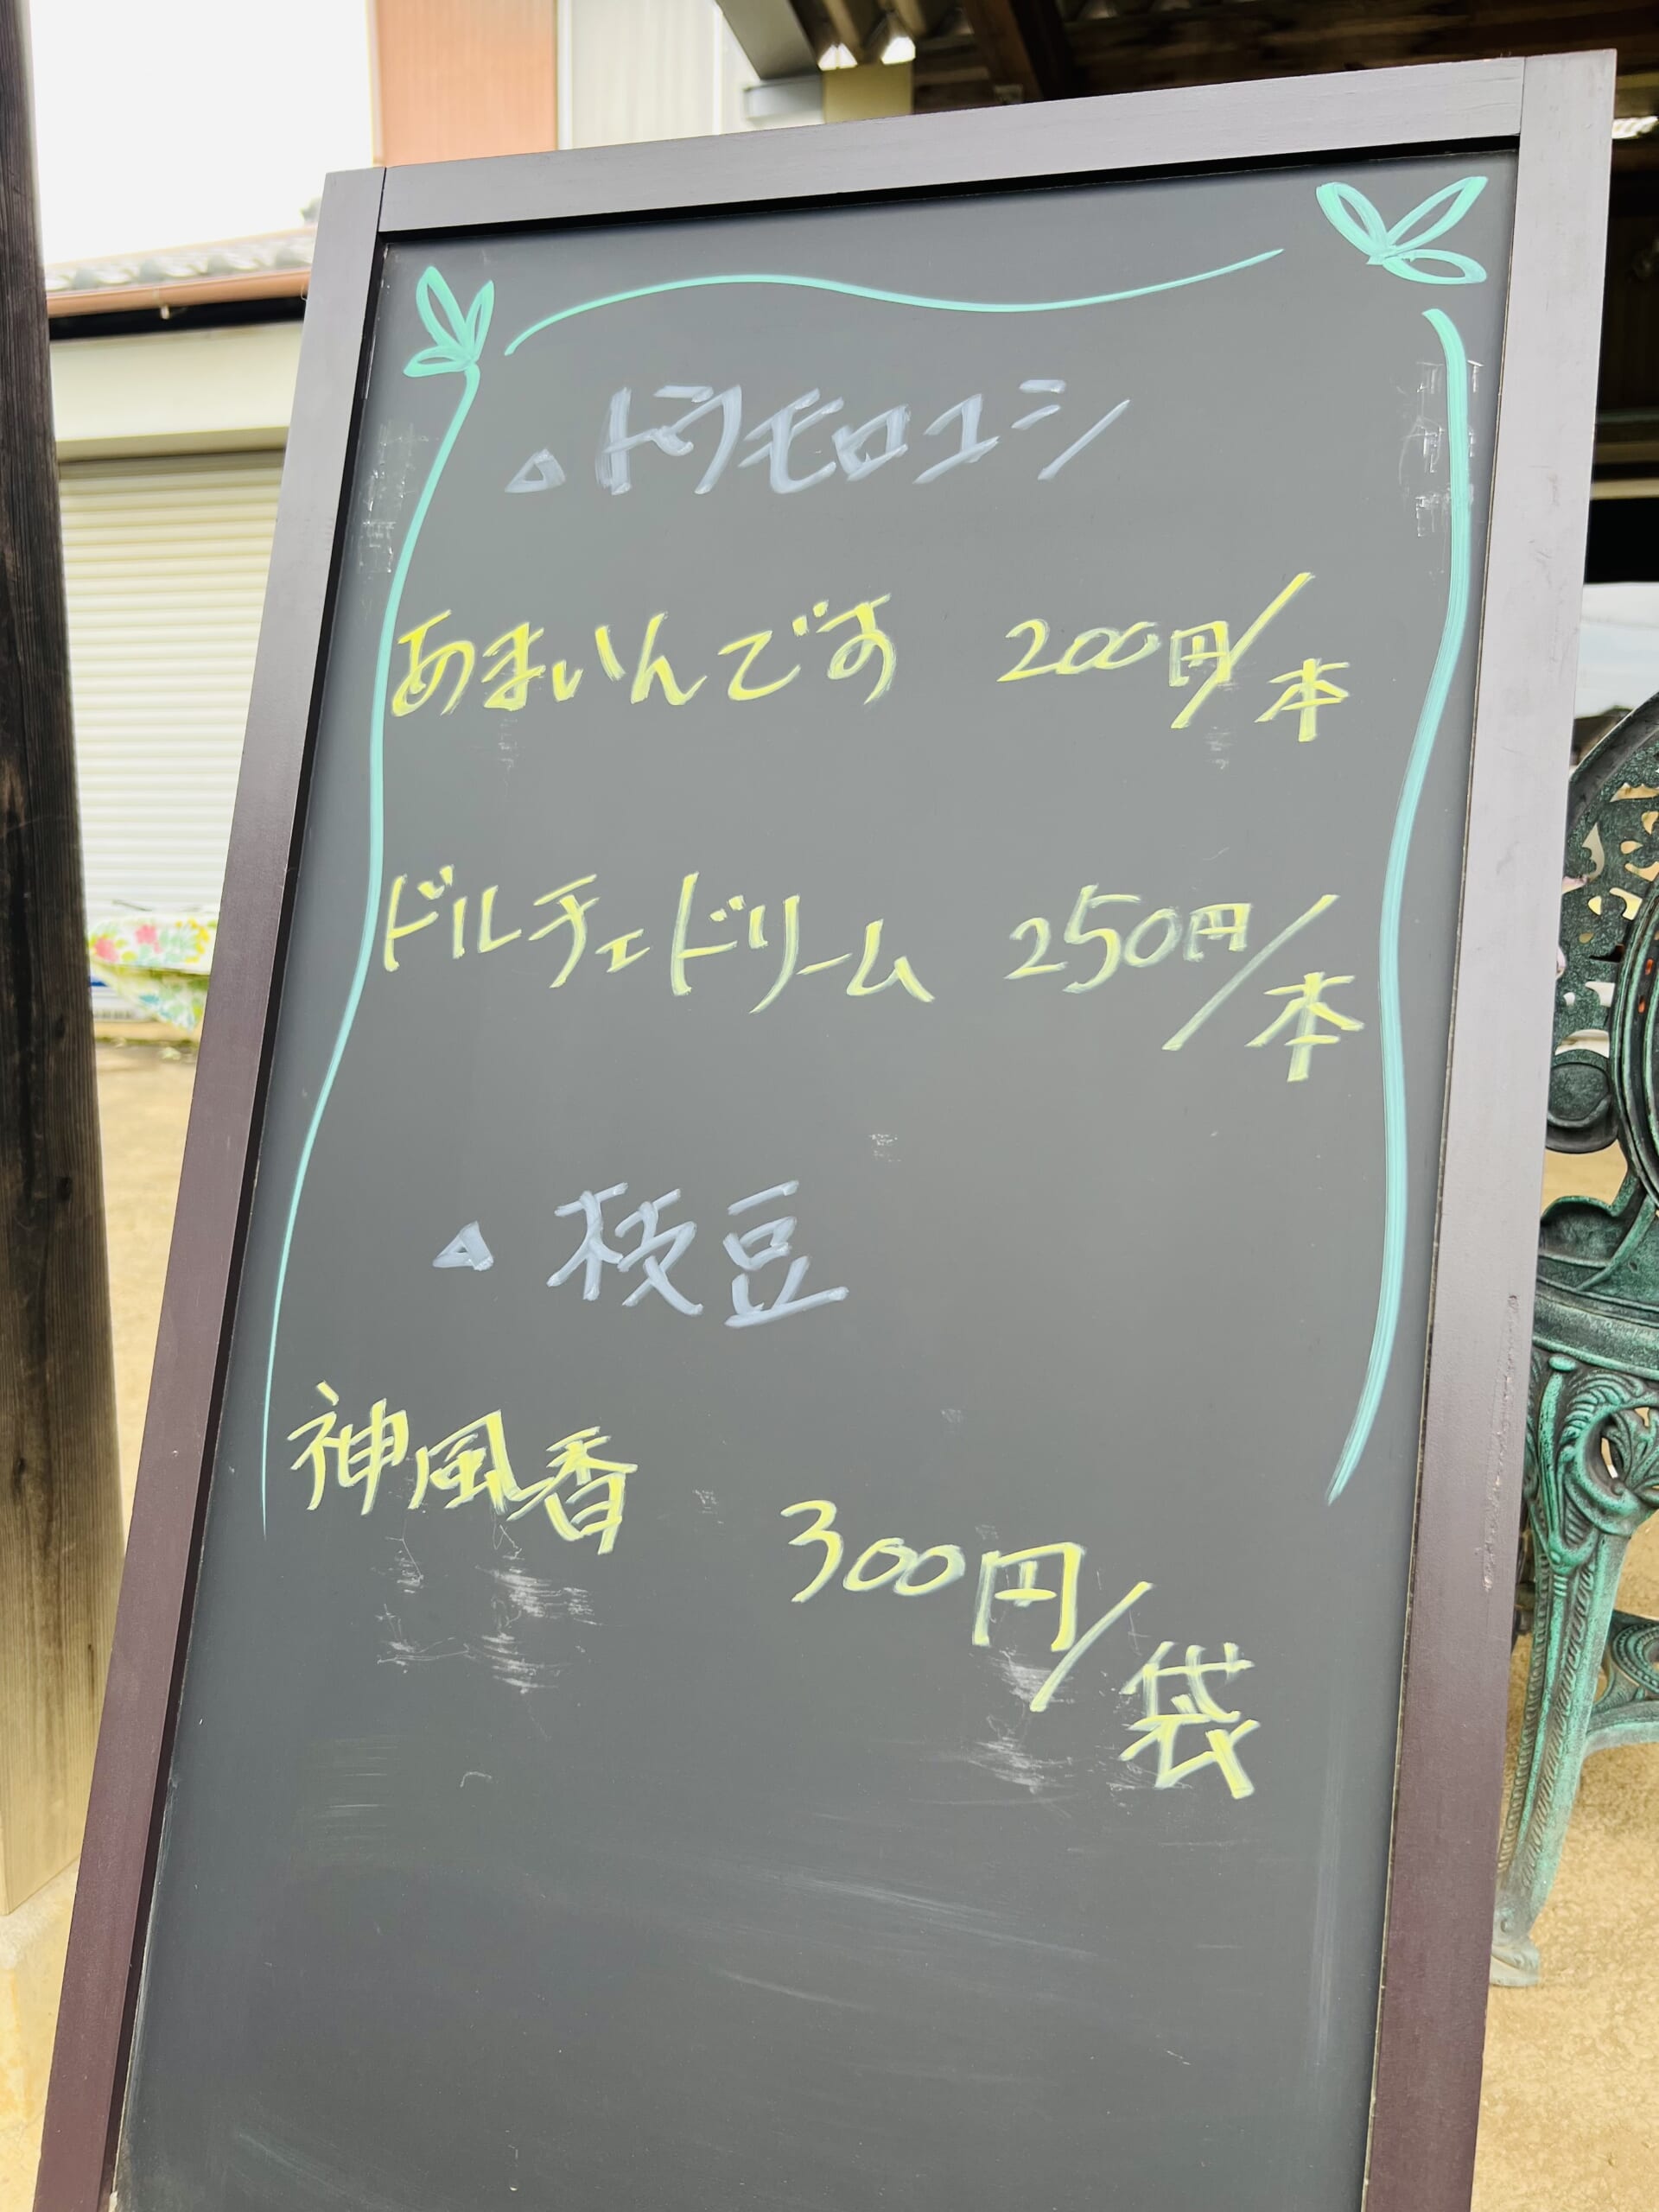 トウモロコシ
あまいんです 200円/本
ドルチェドリーム 250円/本
枝豆
神風香 300円/袋